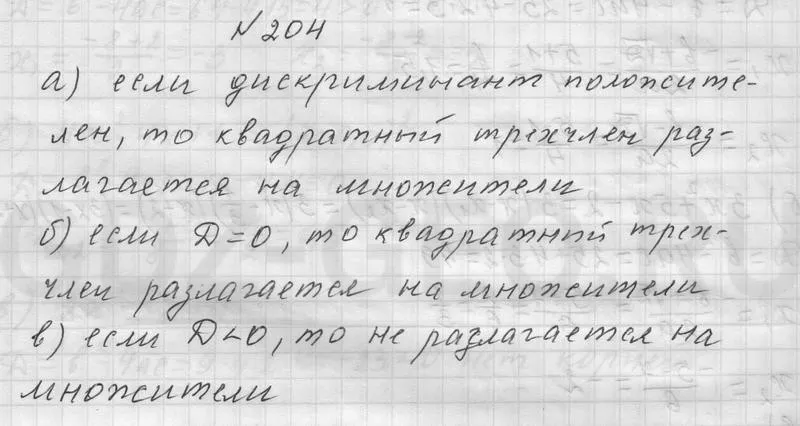 №204
а) если дискриминант положите-
лен, то квадратный трехчлен раз-
лагается на множители
б) если D=0, то квадратный трех-
член разлагается на множители
в) если D<0, то не разлагается на
множители